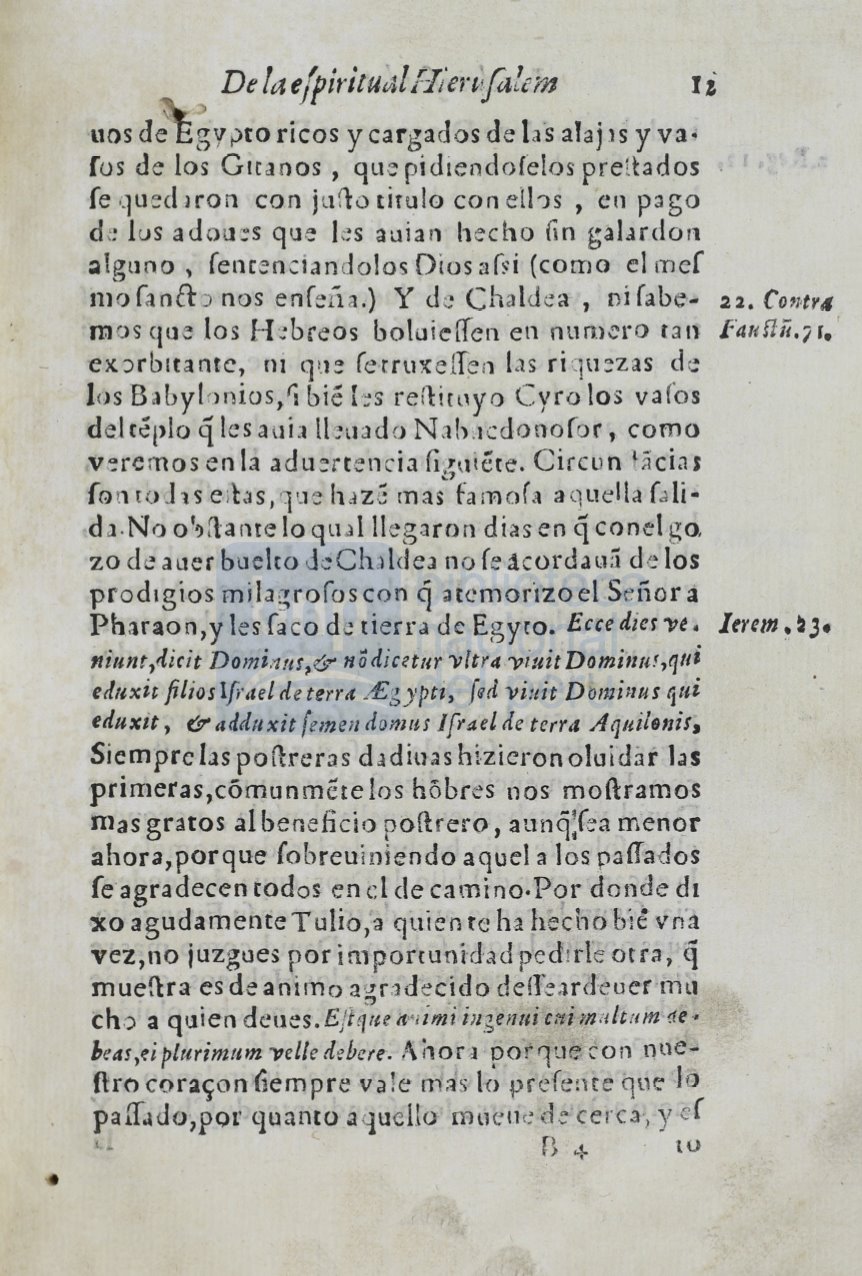 De la eſpiritual Hieruſalem 12
uos de Egypto ricos y cargados de las alajas y va-
ſos de los Gitanos, que pidiendoſelos preſtados
ſe quedaron con juſto titulo con ellos, en pago
de los adoues que les auian hecho ſin galardon
alguno, ſentenciandolos Dios aſsi (como el meſ
mo ſancto nos enſeña.) Y de Chaldea, ni ſabe-
22. Contra
mos que los Hebreos boluieſſen en numero tan
Fauſtũ.71.
exorbitante, ni que ſe truxeſſen las riquezas de
los Babylonios, ſi biẽ les reſtituyo Cyro los vaſos
del tẽplo q̃ les auia lleuado Nabucdonoſor, como
veremos en la aduertencia ſiguiẽte. Circunſtãcias
ſon todas eſtas, que hazẽ mas famoſa aquella ſali-
da. No obſtante lo qual llegaron dias en q̃ con el go
zo de auer buelto de Chaldea no ſe acordauã de los
prodigios milagroſos con q̃ atemorizo el Señor a
Pharaon, y les ſaco de tierra de Egyto. Ecce dies ve.
Ierem. 23.
niunt, dicit Dominus, & nõ dicetur vltra viuit Dominus, qui
eduxit filios Iſrael de terra Ægypti, ſed viuit Dominus qui
eduxit, & adduxit ſemen domus Iſrael de terra Aquilonis,
Siempre las poſtreras dadiuas hizieron oluidar las
primeras, cõmunmẽte los hõbres nos moſtramos
mas gratos al beneficio poſtrero, aunq̃ ſea menor
ahora, porque ſobreuiniendo aquel a los paſſados
ſe agradecen todos en el de camino. Por donde di
xo agudamente Tulio, a quien te ha hecho biẽ vna
vez, no juzgues por importunidad pedirle otra, q̃
mueſtra es de animo agradecido deſſear deuer mu
cho a quien deues. Eſt que animi ingenui cui multum de-
beas, ei plurimum velle debere. Ahora porque con nue-
ſtro coraçon ſiempre vale mas lo preſente que lo
paſſado, por quanto aquello mueue de cerca, y eſ
B 4 to